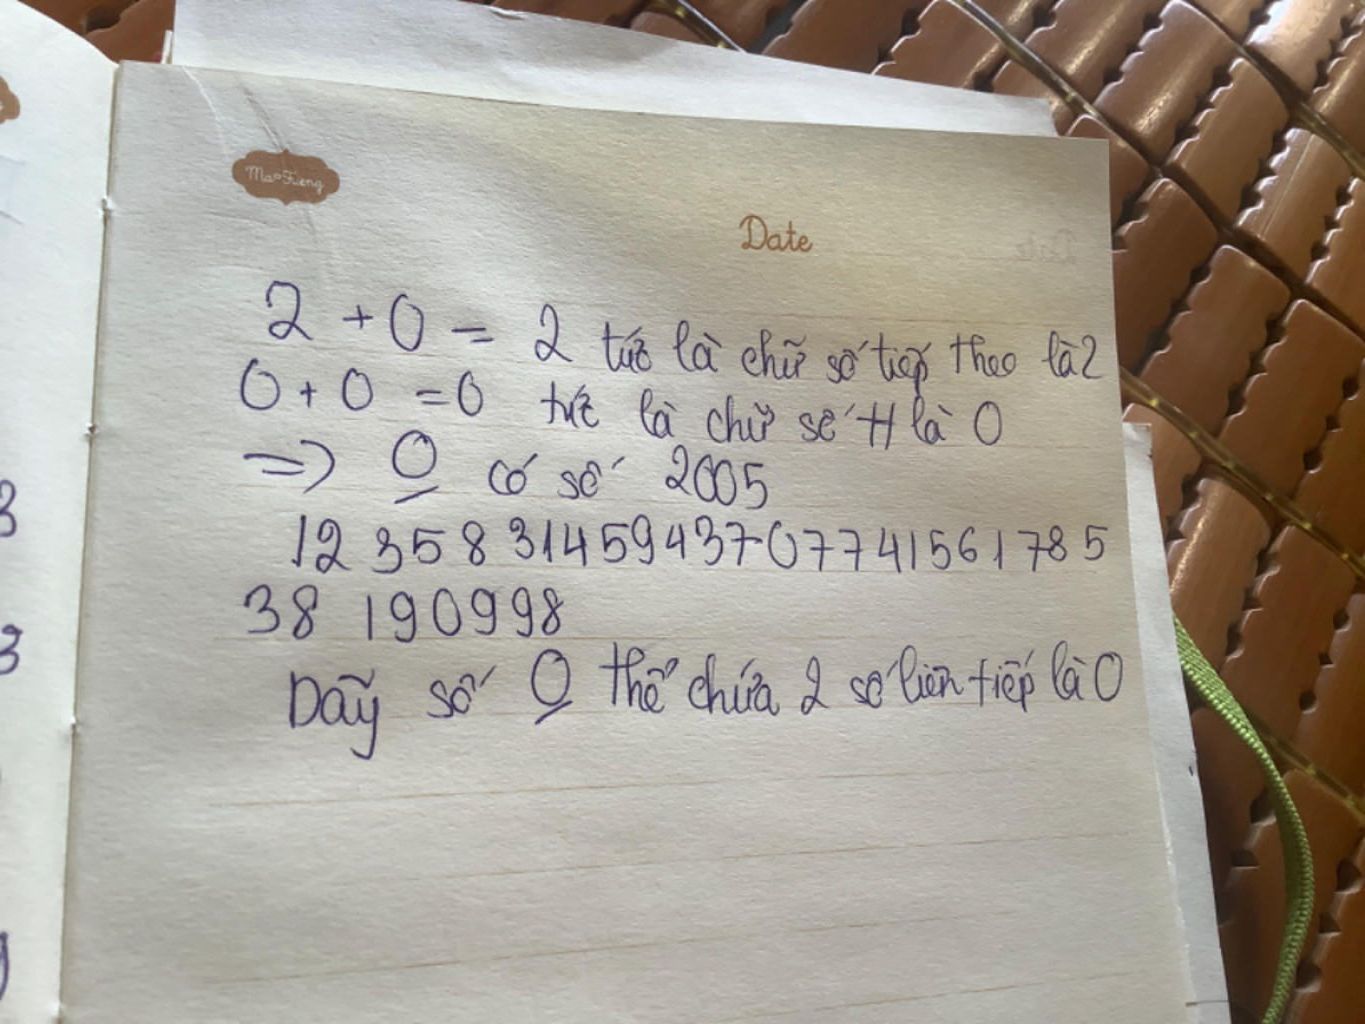 Mao Feng
Date
2 + 0 = 2 tức là chữ số tiếp theo là 2
0 + 0 = 0 tức là chữ số tt là 0
=> O có số 2005
12 358 31459437077415617 85
38 190998
Dãy số O thể chứa 2 số liên tiếp là 0
3
3